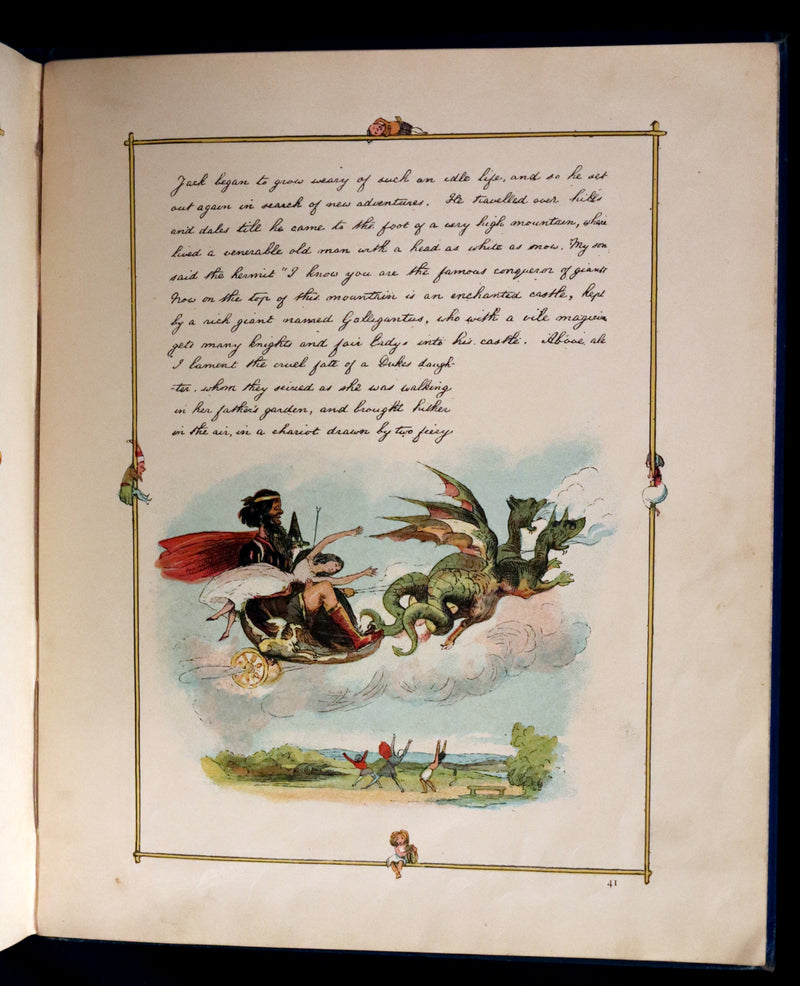 Jack began to grow weary of such an idle life, and so he set
out again in search of new adventures. He travelled over hills
and dales till he came to the foot of a very high mountain, where
lived a venerable old man with a head as white as snow. "My son
said the hermit "I know you are the famous conqueror of giants
Now on the top of this mountain is an enchanted castle, kept
by a rich giant named Galligantus, who with a vile magician
gets many knights and fair Ladys into his castle. Above all
I lament the cruel fate of a Dukes daugh-
-ter. whom they seized as she was walking
in her father's garden, and brought hither
in the air, in a chariot drawn by two fiery
41